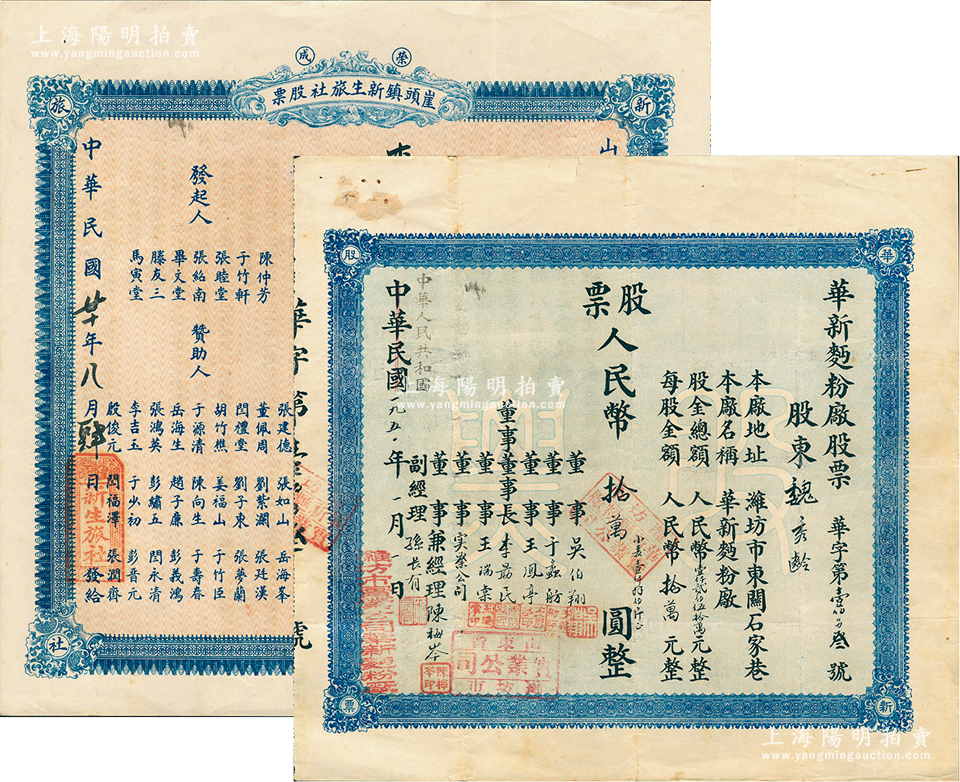 上海陽明拍賣
www.yangmingauction.com
榮成
崖頭鎮新生旅社股票
新
旅
社
山
發起人
陳仲芳
于竹軒
張睦堂
張紹南
畢文堂
滕友三
馬寅堂
贊助人
張建德 張如山 岳海峯
董佩周 劉紫湖 張廷漢
閆禮堂 劉子東 張夢蘭
胡竹樵 姜福山 于竹臣
于源清 陳向生 于壽春
岳海生 趙子廉 彭義鴻
張鴻英 彭繡五 閆永清
李吉玉 于少初 彭晉元
殷俊元 閆福澤 張潤齋
發給
中華民國廿年八月肆日
新生旅社
號
華
股
新
票
華新麵粉廠股票
華字第壹佰另叁號
股東 魏彥齡
本廠地址 濰坊市東關石家巷
本廠名稱 華新麵粉廠
股金總額 人民幣壹仟貳佰伍拾萬元整
每股金額 人民幣拾萬元整
股票
人民幣拾萬圓整
董事 吳伯翔
董事 于蝨舫
董事 王鳳亭
董事長 李勗民
董事 王瑞棠
董事 實業公司
董事兼經理 陳梅岑
副經理 孫長有
中華人民共和國
中華民國一九五〇年一月一日
山東省
實業公司
濰坊市
陳梅岑印
上海陽明拍賣
www.yangmingauction.com
上海陽明拍賣
www.yangmingauction.com